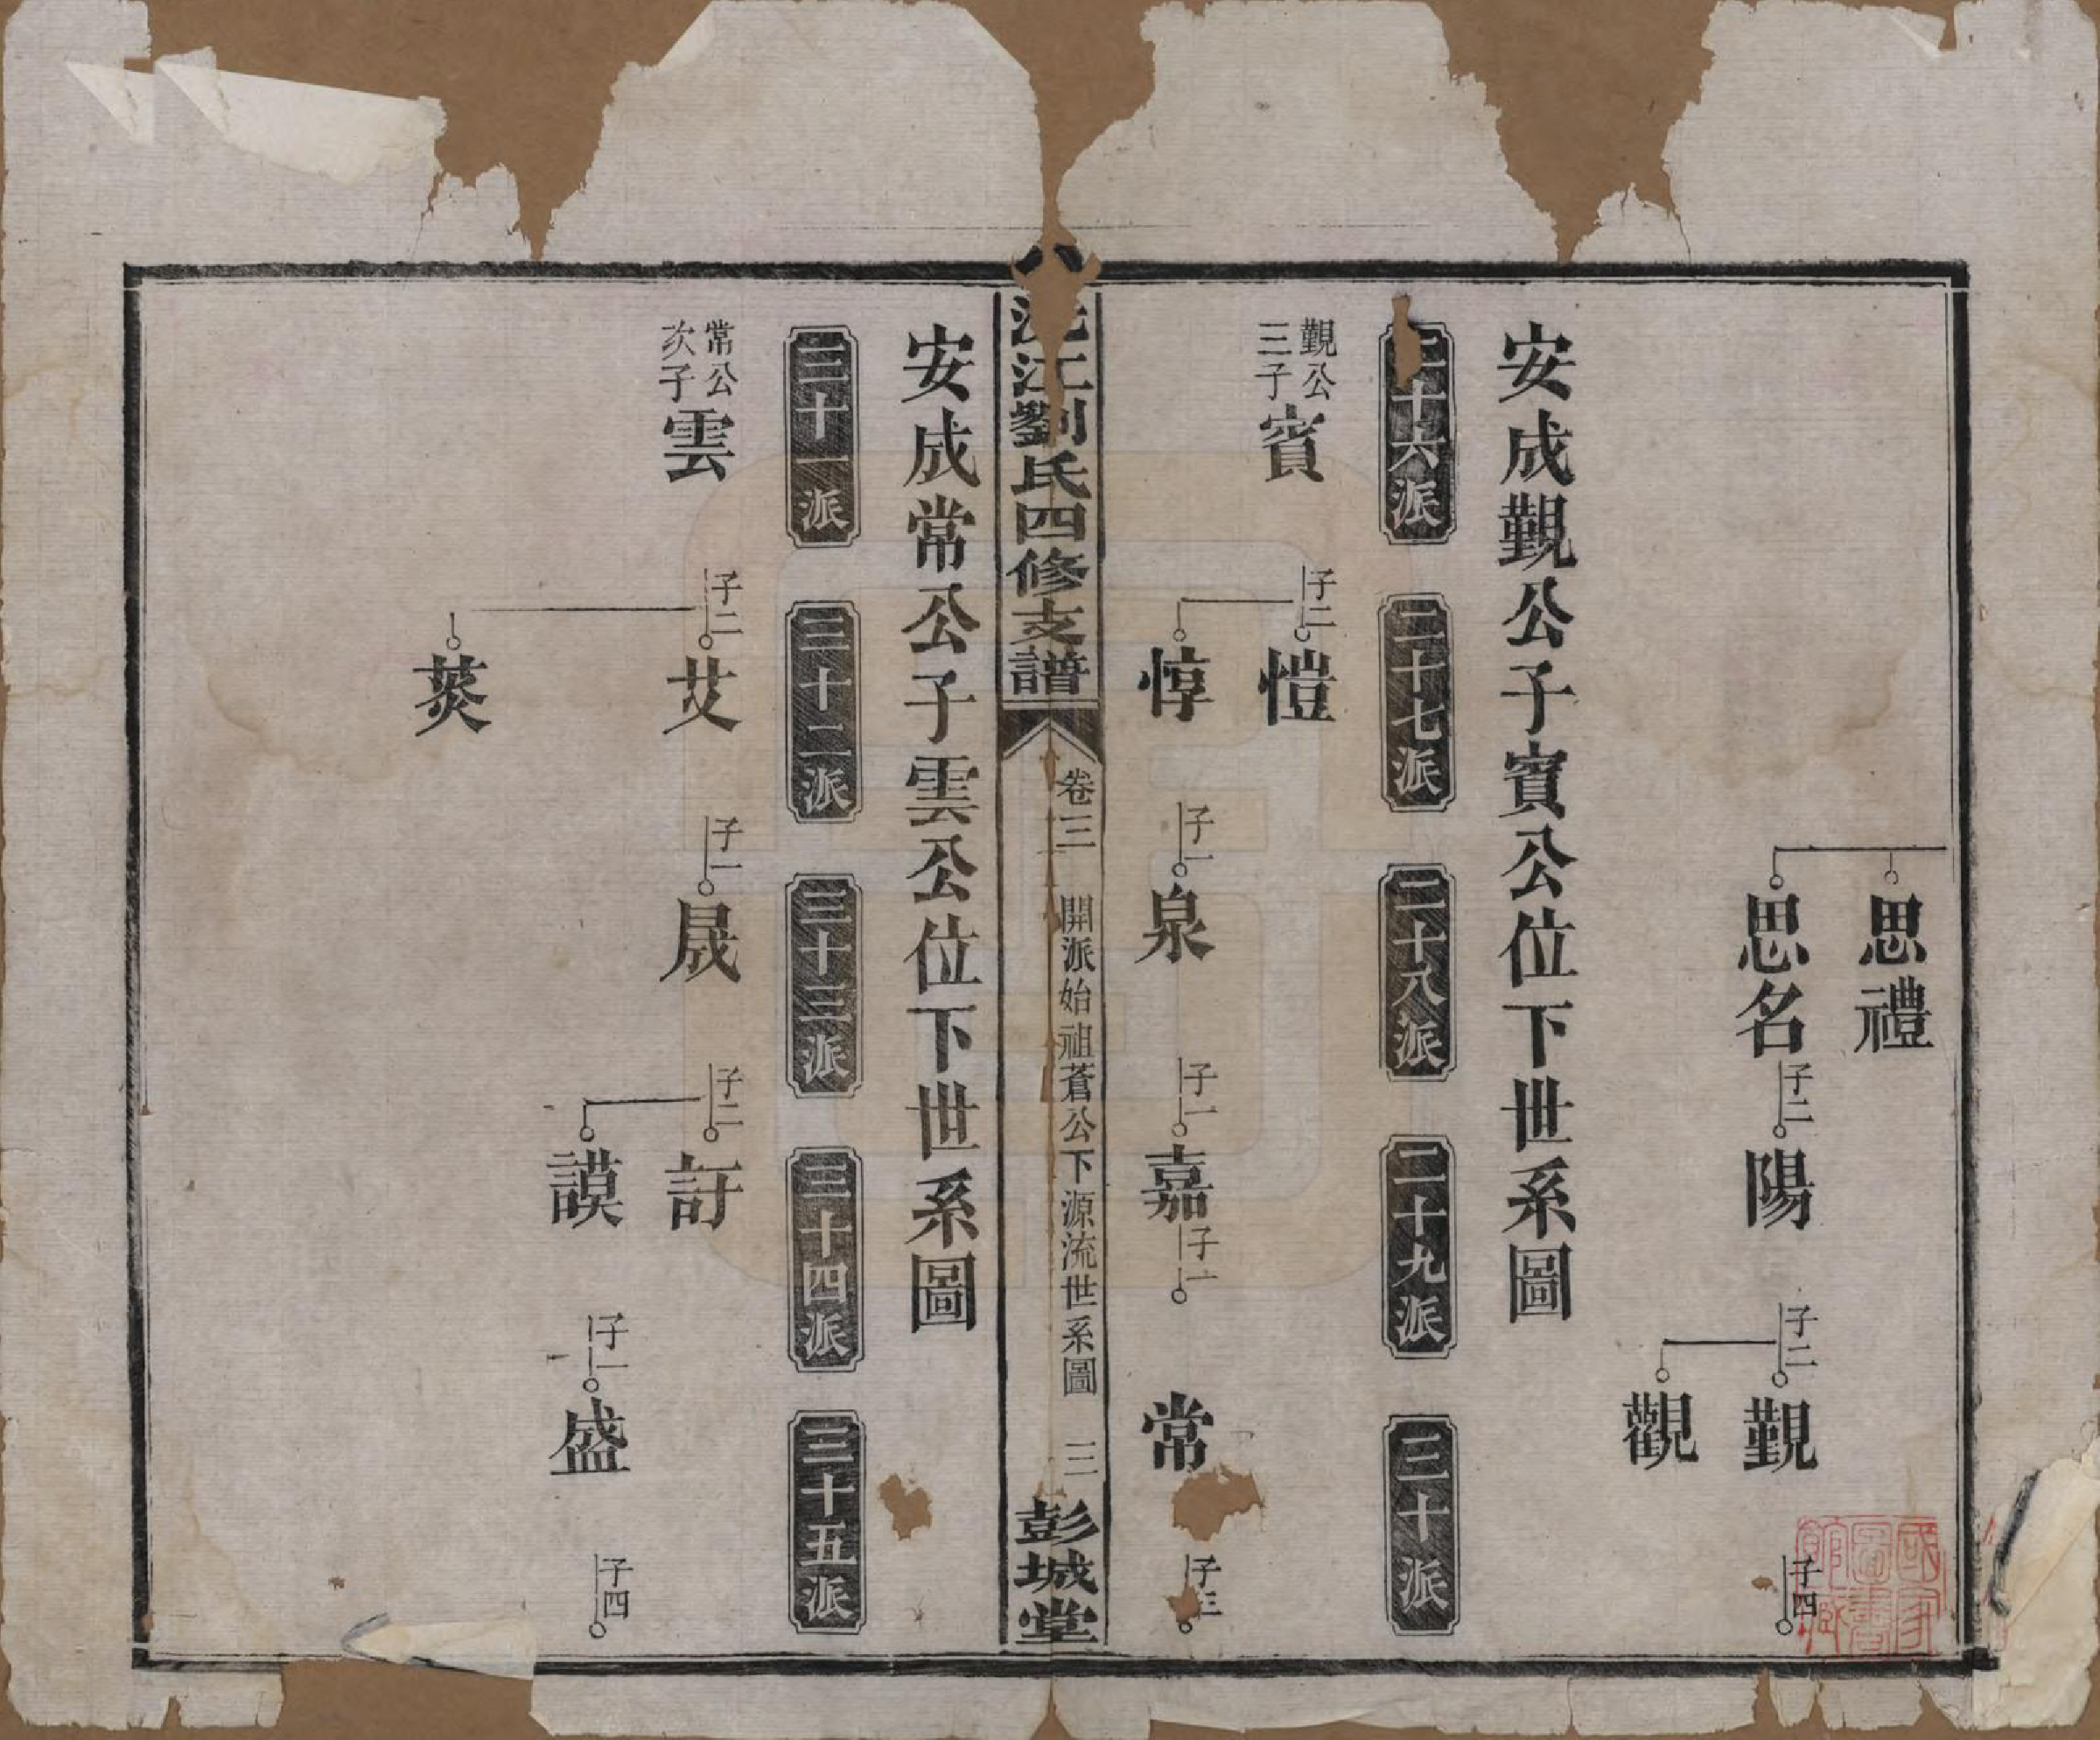 思禮
思名
子二
陽
子二
觀
觀
子四
安成觀公子賓公位下世系圖
二十六派
二十七派
二十八派
二十九派
三十派
觀公
三子
賓
子二
愷
惇
子一
泉
子一
嘉
子一
常
子三
沅江劉氏四修支譜
卷三
開派始祖蒼公下源流世系圖
三
彭城堂
安成常公子雲公位下世系圖
三十一派
三十二派
三十三派
三十四派
三十五派
常公
次子
雲
子二
艾
菼
子一
晟
子二
訏
謨
子一
盛
子四
國家圖書館藏